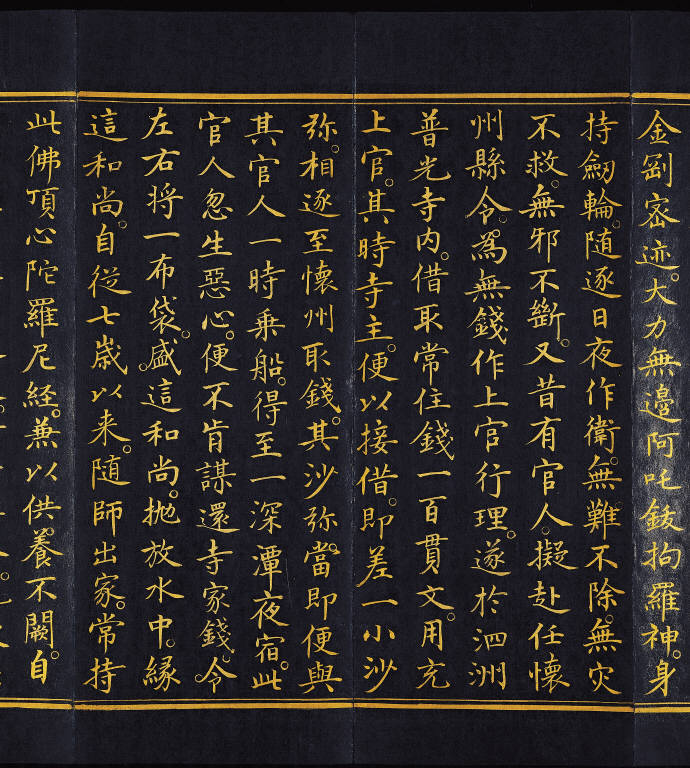 金剛密迹。大力無邊阿吒鈸拘羅神。身
持劒輪。隨逐日夜作衛。無難不除。無灾
不救。無邪不斷。又昔有官人。擬赴任懷
州縣令。為無錢作上官行理。遂於泗洲
普光寺内。借取常住錢一百貫文。用充
上官。其時寺主。便以接借。即差一小沙
弥。相逐至懷州取錢。其沙弥。當即便與
其官人一時乘船。得至一深潭夜宿。此
官人忽生惡心。便不肯謀還寺家錢。令
左右将一布袋。盛這和尚。抛放水中。緣
這和尚。自從七歳以来。随師出家。常持
此佛頂心陀羅尼経。兼以供養。不闕。自